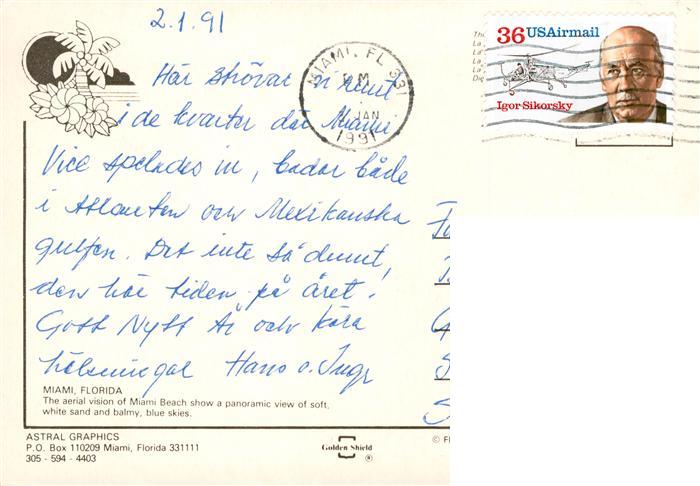 2.1.91
Här strövar vi runt
i de kvarter där Miami
Vice spelades in, badar både
i Atlanten och Mexikanska
gulfen. Det inte så dumt,
den här tiden på året!
Gott Nytt År och kära
hälsningar Hans o. Inge
MIAMI, FL 331
PM
JAN
1991
36 USAirmail
Igor Sikorsky
MIAMI, FLORIDA
The aerial vision of Miami Beach show a panoramic view of soft,
white sand and balmy, blue skies.
ASTRAL GRAPHICS
P.O. Box 110209 Miami, Florida 331111
305 - 594 - 4403
Golden Shield
®
©